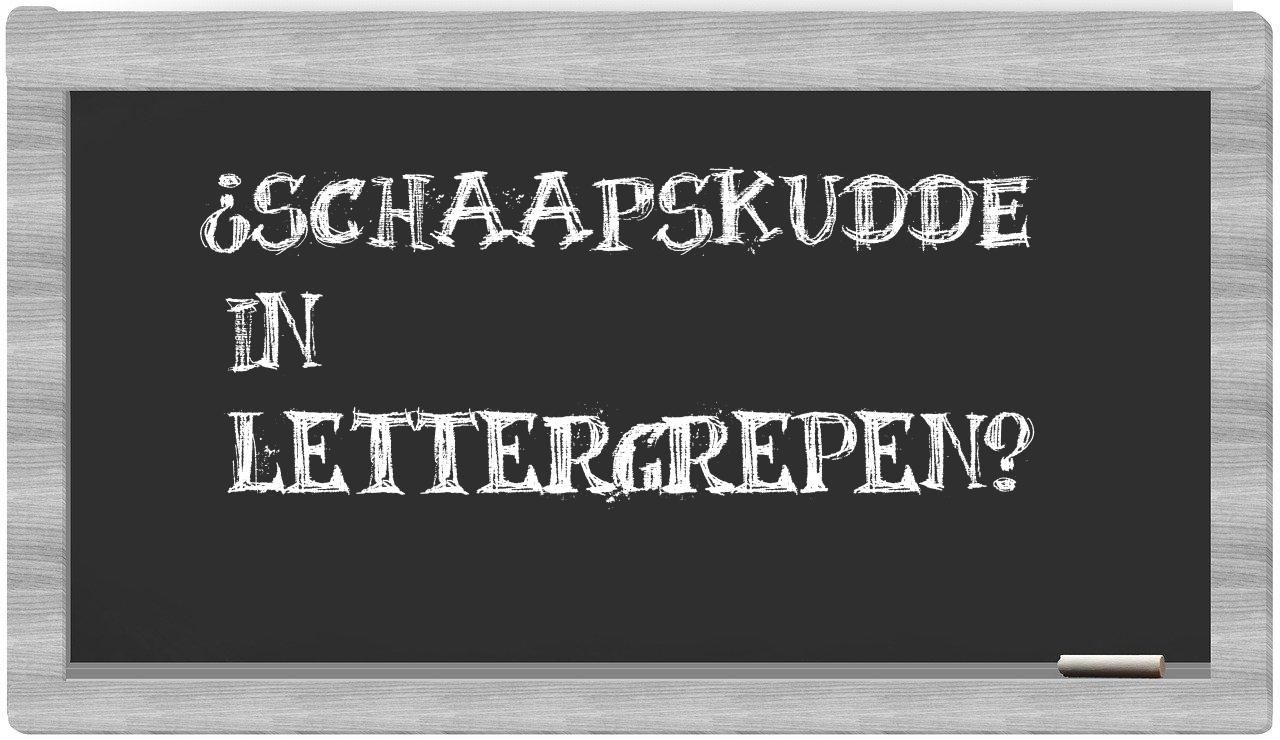 ¿SCHAAPSKUDDE
IN
LETTERGREPEN?